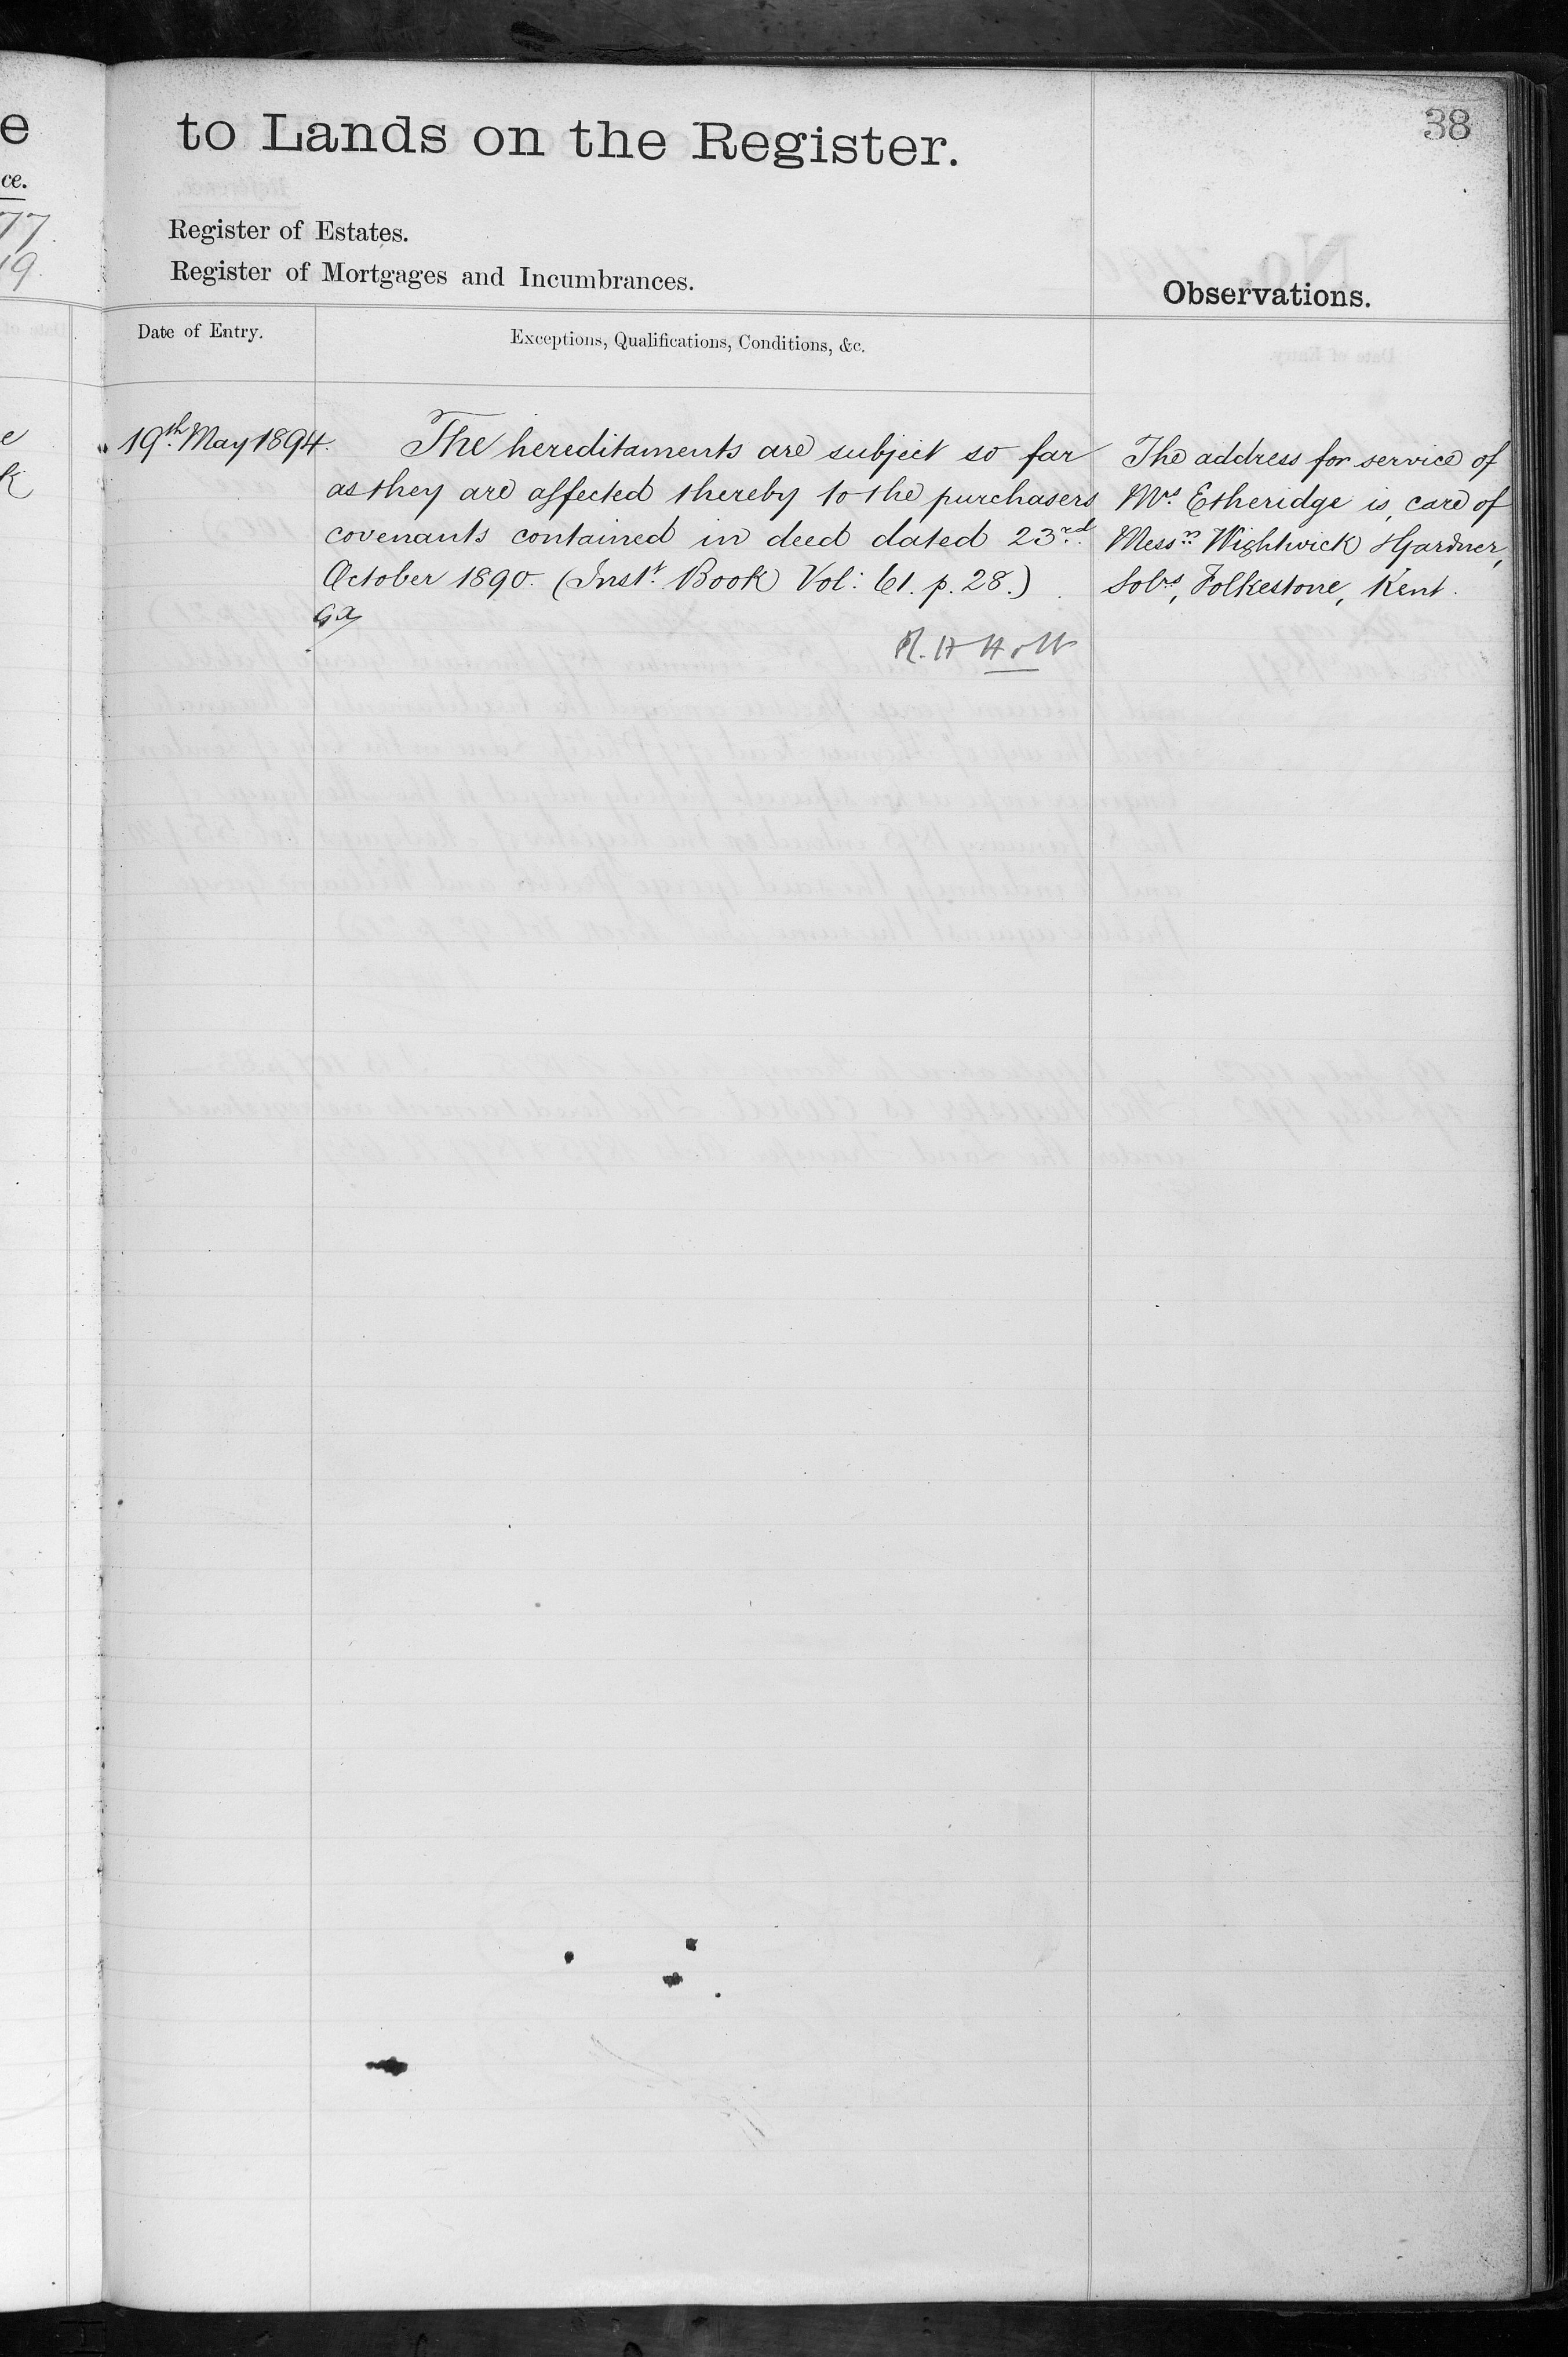 38
e
to Lands on the Register.
ce.
77.
19.
Register of Estates.
Register of Mortgages and Incumbrances.
Observations.
Date of Entry.
Exceptions, Qualifications, Conditions, &c.
e
k
19th May 1894.
The hereditaments are subject so far
as they are affected thereby to the purchasers
covenants contained in deed dated 23rd
October 1890. (Inst. Book Vol: 61. p. 28.)
R. H Holt
The address for service of
Mrs Etheridge is, care of
Messrs Wightwick & Gardner,
Solrs, Folkestone, Kent.